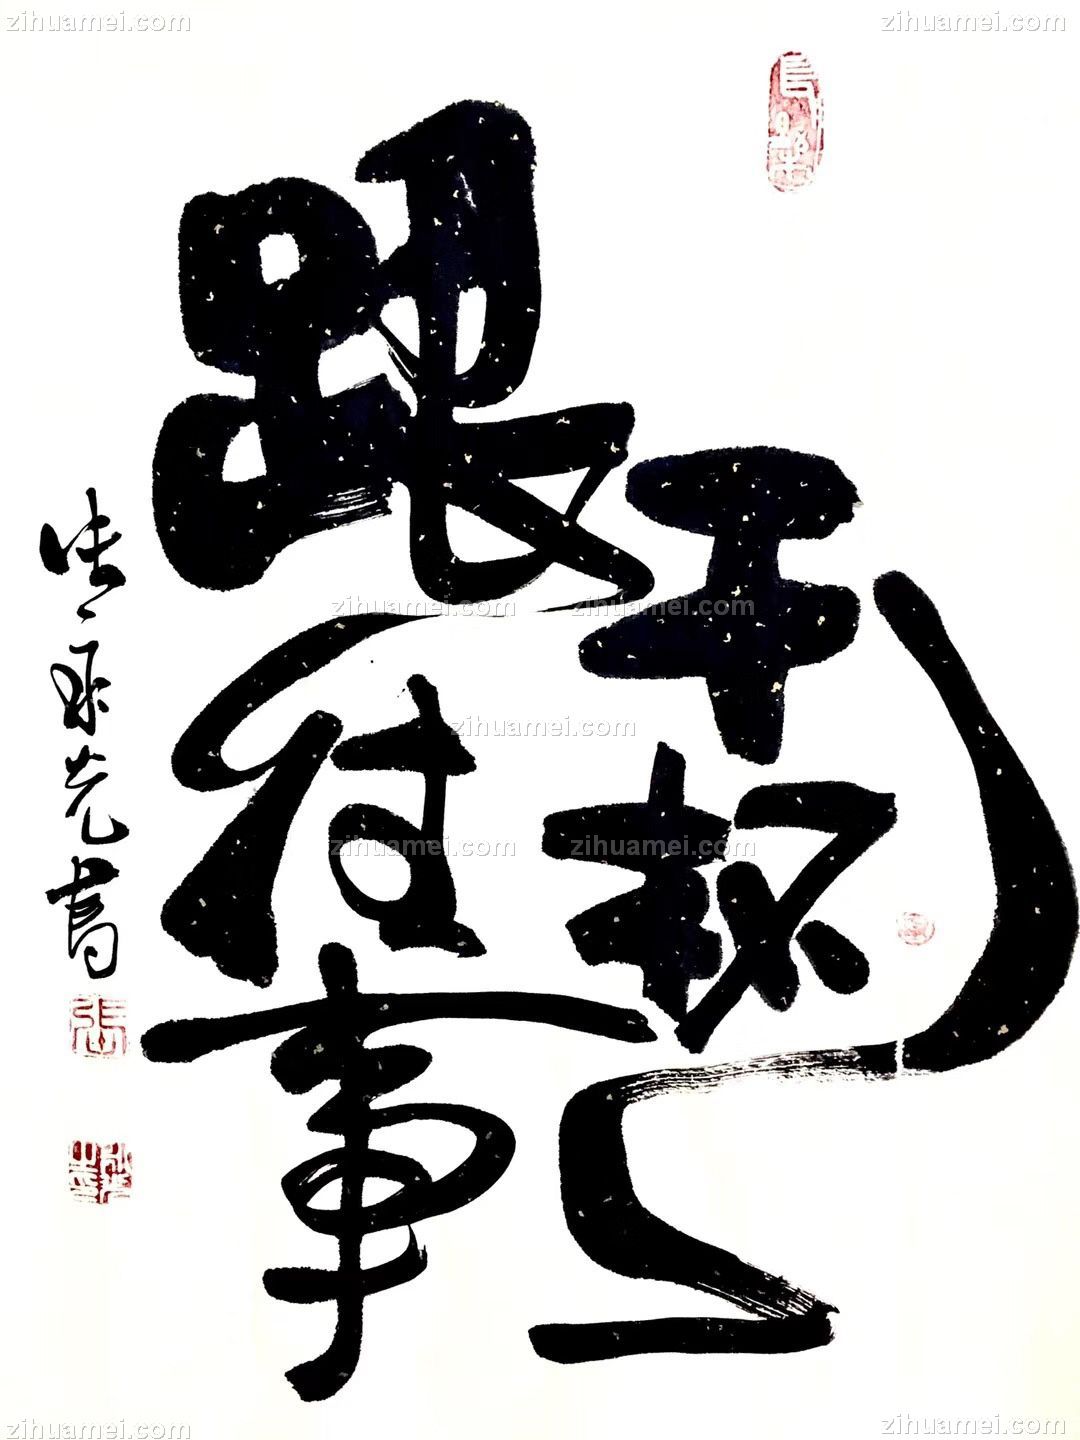 zihuamei.com
zihuamei.com
跟往事
干杯
光书
张
zihuamei.com
zihuamei.com
zihuamei.com
zihuamei.com
zihuamei.com
zihuamei.com
zihuamei.com